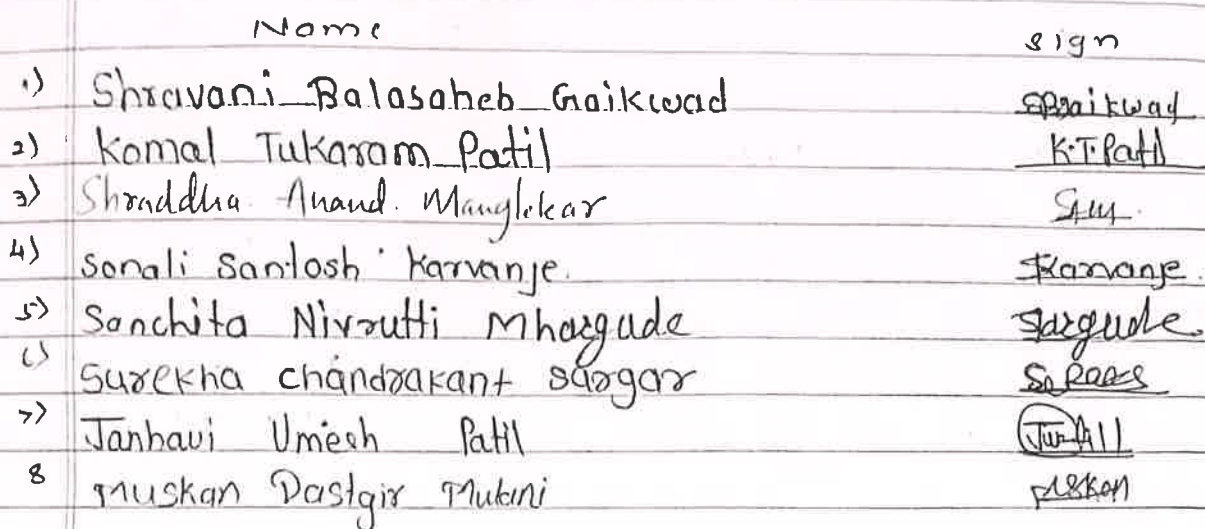 Name sign
1) Shravani Balasaheb Gaikwad SBGaikwad
2) Komal Tukaram Patil K.T.Patil
3) Shraddha Anand. Manglekar
4) Sonali Santosh Karvanje. Skarvanje.
5) Sanchita Nivrutti Mhargude
6) Surekha chandrakant sargar
7) Janhavi Umesh Patil
8 Muskan Dastgir Mulani